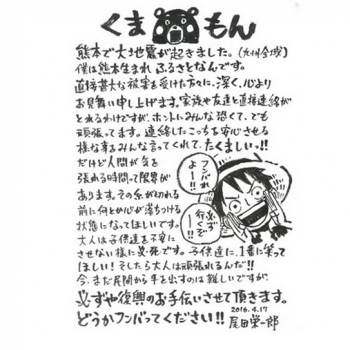 くまもん
熊本で大地震が起きました。(九州全域)
僕は熊本生まれ ふるさとなんです。
直接甚大な被害を受けた方々に、深く、心より
お見舞い申し上げます。家族や友達と直接連絡が
とれるわけですが、ホントにみんな恐くて、でも
頑張ってます。連絡したこっちを安心させる
様な事をみんな言ってくれて、たくましいっ!!
だけど人間が気を
張れる時間って限界が
あります。その糸が切れる
前に何とか心が落ちつける
状態になってほしいです。
大人は子供達を不安に
させない様に必死です。子供達に、1番に笑って
ほしい!そしたら大人は頑張れるんだ!!
今、まだ民間から手を出すのは難しいですが、
必ずや復興のお手伝いさせて頂きます。
どうかフンバってください!!
2016.4.17
尾田栄一郎
フンバれ
よー!!
必ず
行くぞー!!